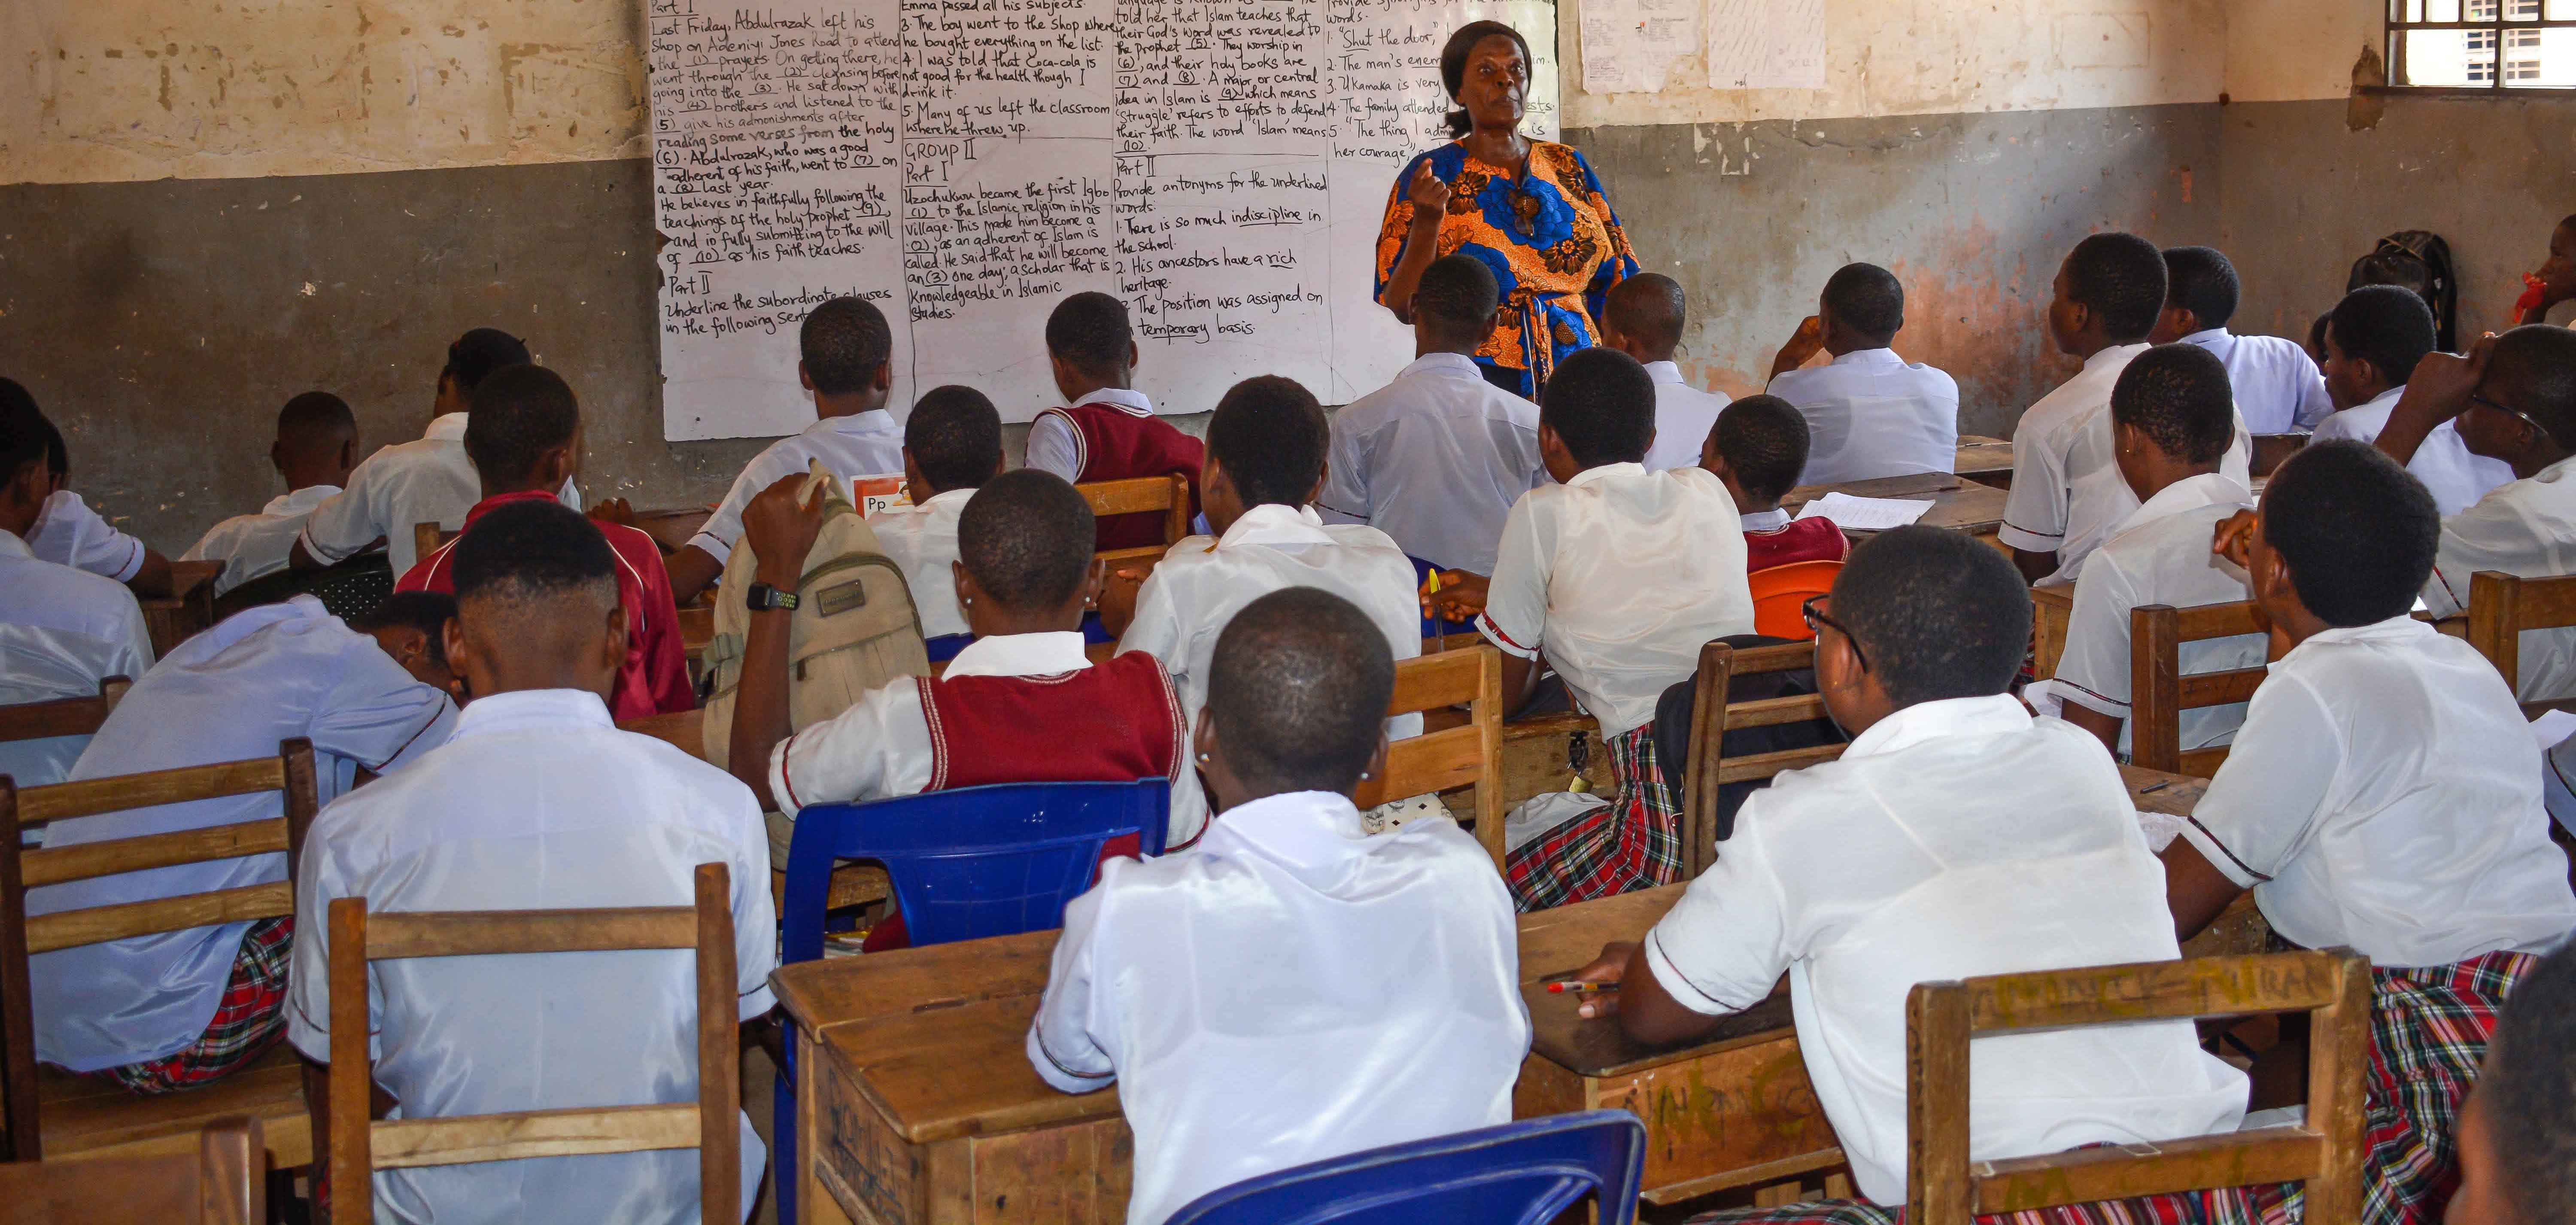 Part I
Last Friday, Abdulrazak left his
shop on Adeniyi Jones Road to attend
the (1) prayers. On getting there, he
went through the (2) cleansing before
going into the (3). He sat down with
his (4) brothers and listened to the
(5) give his admonishments after
reading some verses from the holy
(6). Abdulrazak, who was a good
adherent of his faith, went to (7) on
a (8) last year.
He believes in faithfully following the
teachings of the holy prophet (9),
and in fully submitting to the will
of (10) as his faith teaches.
Part II
Underline the subordinate clauses
in the following
Emma passed all his subjects.
3. The boy went to the shop where
he bought everything on the list.
4. I was told that Coca-cola is
not good for the health though I
drink it.
5. Many of us left the classroom
where he threw up.
GROUP II
Part I
Uzochukwu became the first Igbo
(1) to the Islamic religion in his
village. This made him become a
(2), as an adherent of Islam is
called. He said that he will become
an (3) one day; a scholar that is
knowledgeable in Islamic
Studies.
language is known as
told her that Islam teaches that
their God's word was revealed to
the prophet (5). They worship in
(6), and their holy books are
(7) and (8). A major or central
idea in Islam is (9) which means
'Struggle' refers to efforts to defend
their faith. The word "Islam" means
(10).
Part II
Provide antonyms for the underlined
words:
1. There is so much indiscipline in
the school.
2. His ancestors have a rich
heritage.
The position was assigned on
temporary basis.
words.
1. "Shut the door,"
2. The man's
3. Ukamaka is very
4. The family attended
5. "The thing I is
her courage,"
Pp